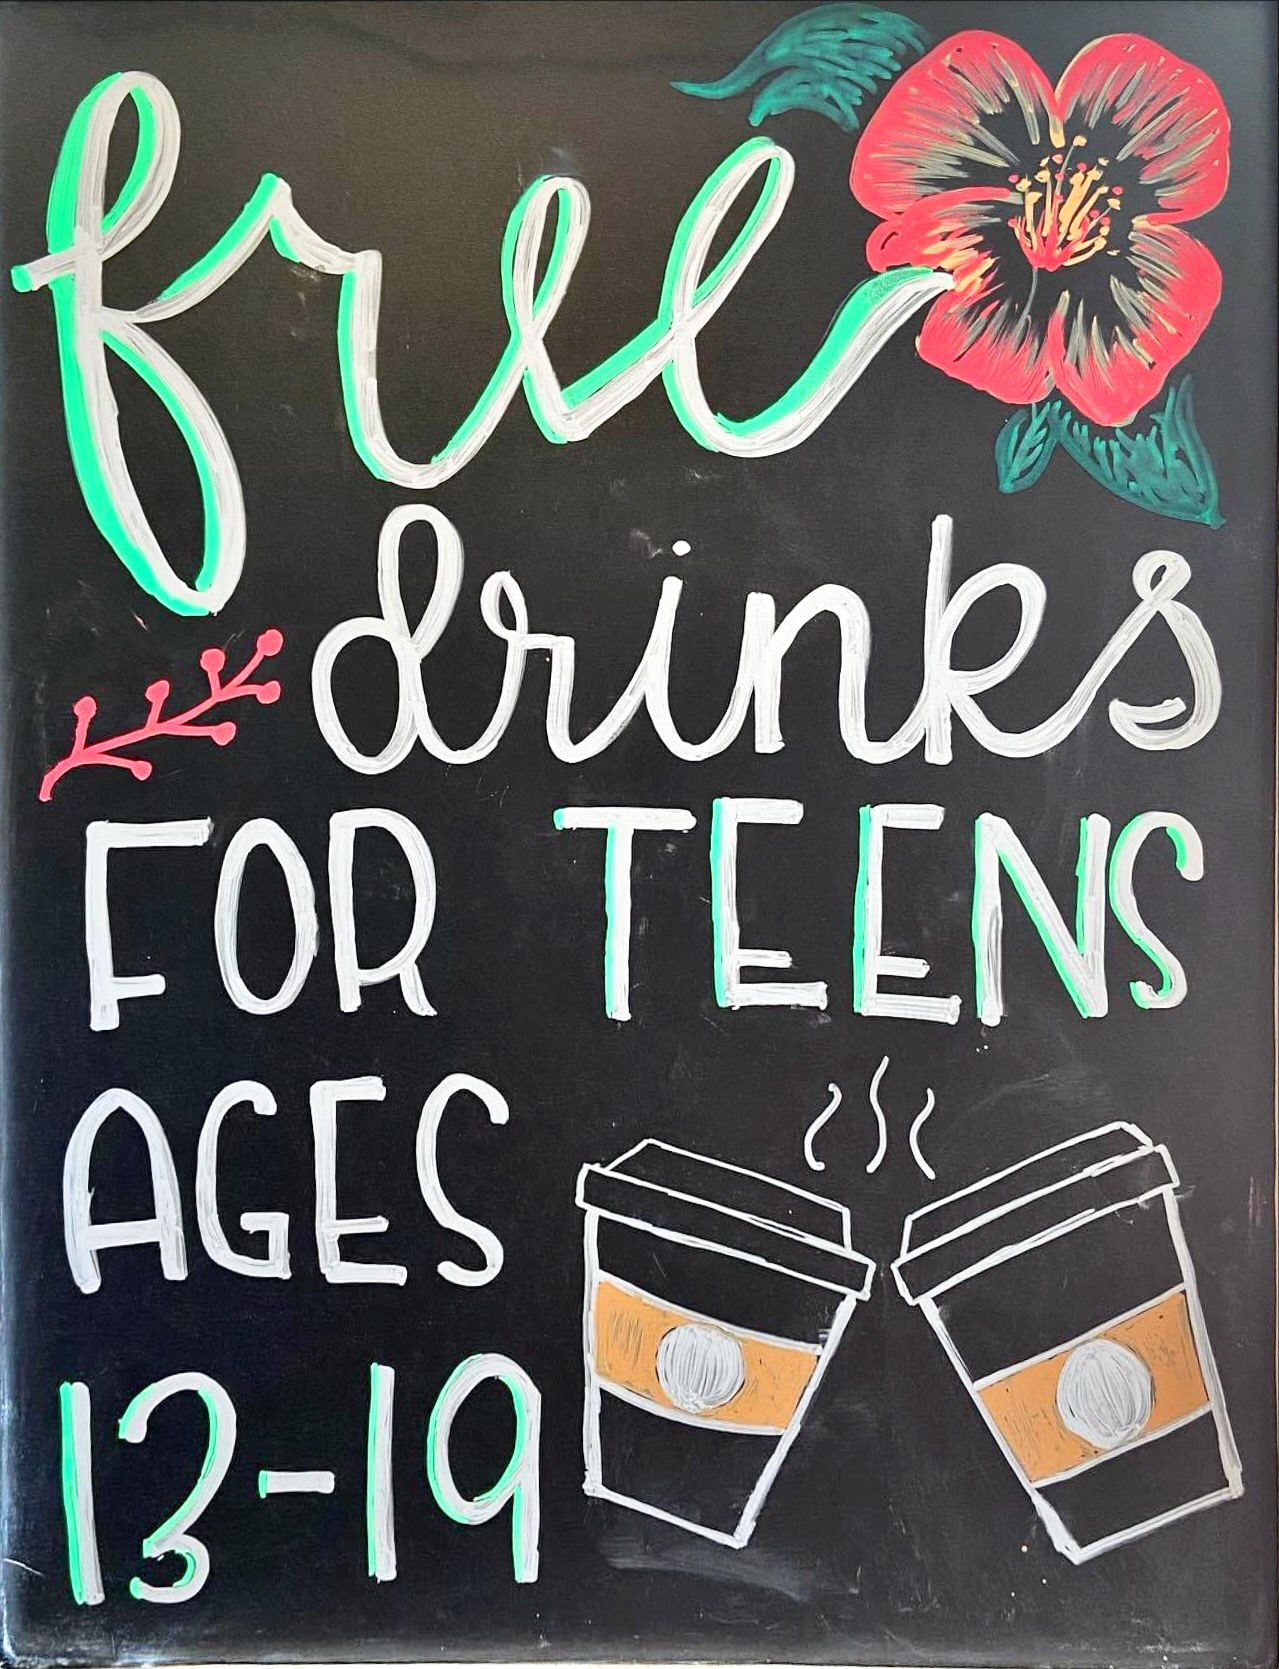 free
drinks
FOR TEENS
AGES
13-19